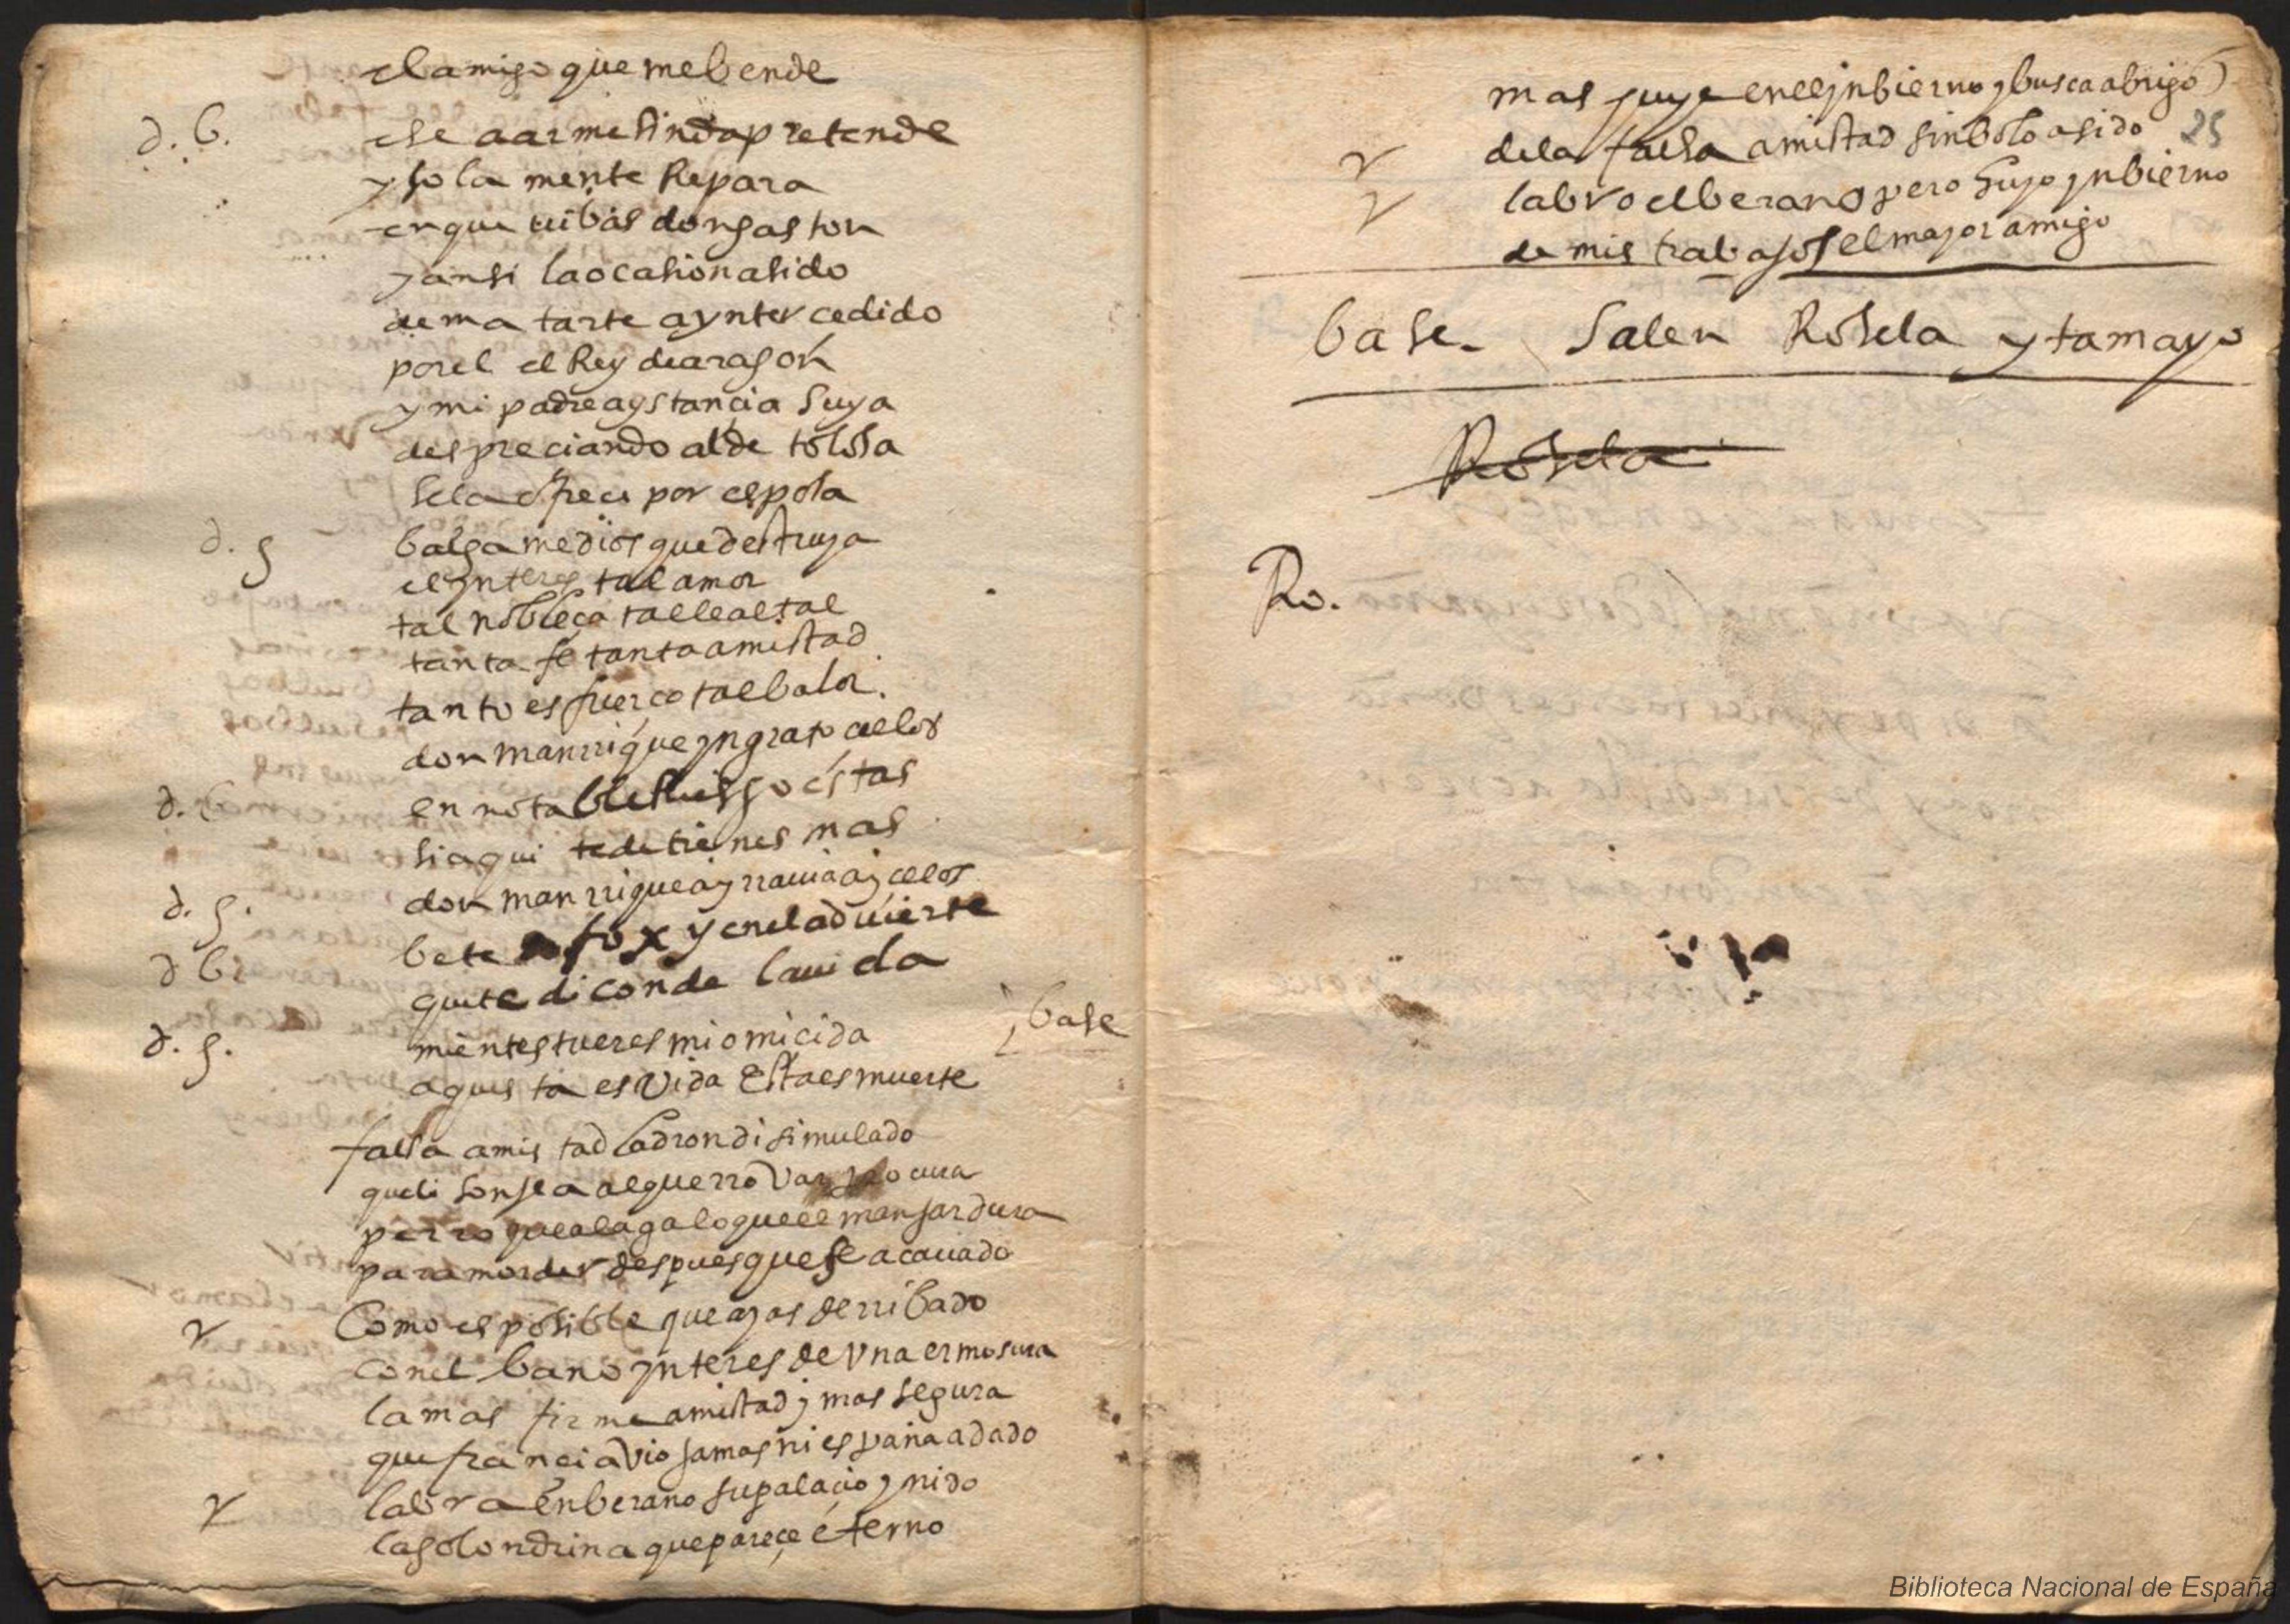 el amigo que me bende
d. b. ese a armesinda pretende
y sola mente Repara
en que uibas don gaston
y ansi la ocasion a sido
de ma tarte a ynter cedido
por el el Rey de aragon
y mi padre a ystançia suya
despreciando al de tolosa
se la ofreçe por esposa
d. g balga me dios que destruya
el ynteres tal amor
tal nobleça tal lealtal
tanta fe tanta amistad
tanto esfuerço tal balor
don manrrique yngrato çielos
d. b en notable Riesgo estas
si aqui te detienes mas
d. g. don manrrique ay rrauia ay celos
d br bete a fox y en el aduierte
que te di conde la uida
d. g. mientes tu eres mi omicida
aquesta es vida Esta es muerte
base
falsa amis tad ladron disimulado
que lisongea al que rrovar procura
perro que alaga lo que el manjar dura
para morder despues que se a acauado
Como es posible que ayas derribado
con el bano ynteres de vna ermosura
la mas firme amistad y mas segura
que francia vio jamas ni españa a dado
labra en berano su palaçio y nido
la golondrina que pareçe eterno
mas huye en el ynbierno y busca abrigo
25
de la falsa amistad sinbolo a sido
labro el berano pero huyo ynbierno
de mis trabajos el mayor amigo
base. Salen Rosela y tamayo
Rosela
Ro.
Biblioteca Nacional de España